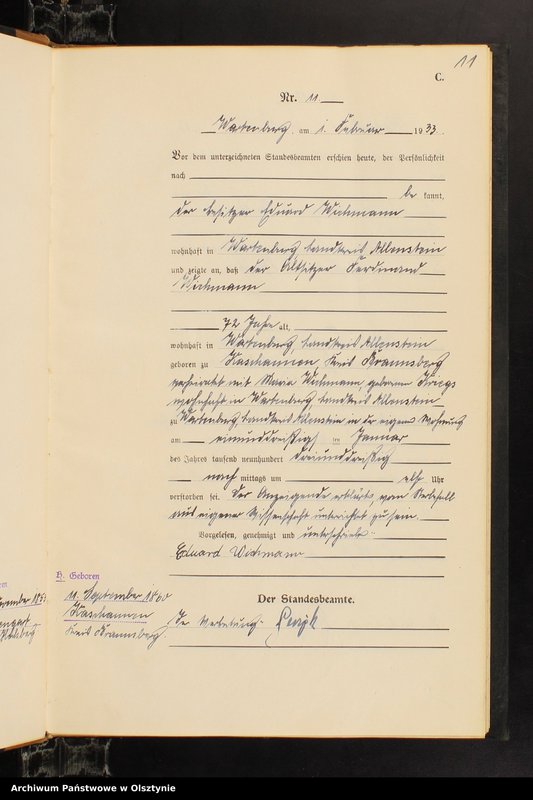 11
C.
Nr. 11
Wartenberg, am 1. Februar 1933.
Vor dem unterzeichneten Standesbeamten erschien heute, der Persönlichkeit
nach
be kannt,
der Besitzer Eduard Wichmann
wohnhaft in Wartenberg, Landkreis Allenstein
und zeigte an, daß der Altsitzer Ferdinand
Wichmann
72 Jahre alt,
wohnhaft in Wartenberg, Landkreis Allenstein
geboren zu Kaschaunen, Kreis Braunsberg
verheiratet mit Maria Wichmann, geborene
wohnhaft in Wartenberg, Landkreis Allenstein
zu Wartenberg, Landkreis Allenstein in der eigenen Wohnung
am einunddreißigsten Januar
des Jahres tausend neunhundert dreiunddreißig
nach mittags um elf Uhr
verstorben sei. Der Anzeigende erklärte, vom Sterbefall
aus eigener Wissenschaft unterrichtet zu sein.
Vorgelesen, genehmigt und unterschrieben
Eduard Wichmann
H. Geboren
11. September 1860
Kaschaunen
Kreis Braunsberg.
Der Standesbeamte.
In Vertretung:
Archiwum Państwowe w Olsztynie